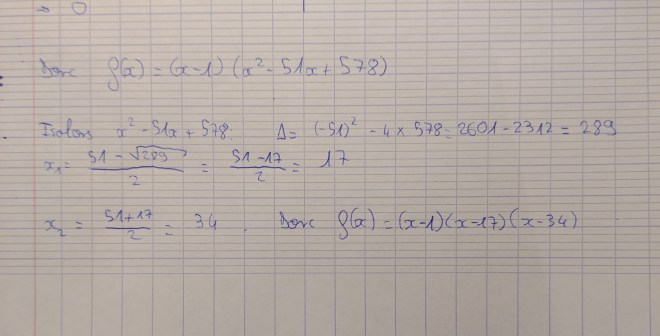 => 0
Donc f(x) = (x-1) (x² - 51x + 578)
Isolons x² - 51x + 578. Δ = (-51)² - 4 × 578 = 2601 - 2312 = 289
x₁ = (51 - √289)/2 = (51 - 17)/2 = 17
x₂ = (51 + 17)/2 = 34. Donc f(x) = (x-1)(x-17)(x-34)